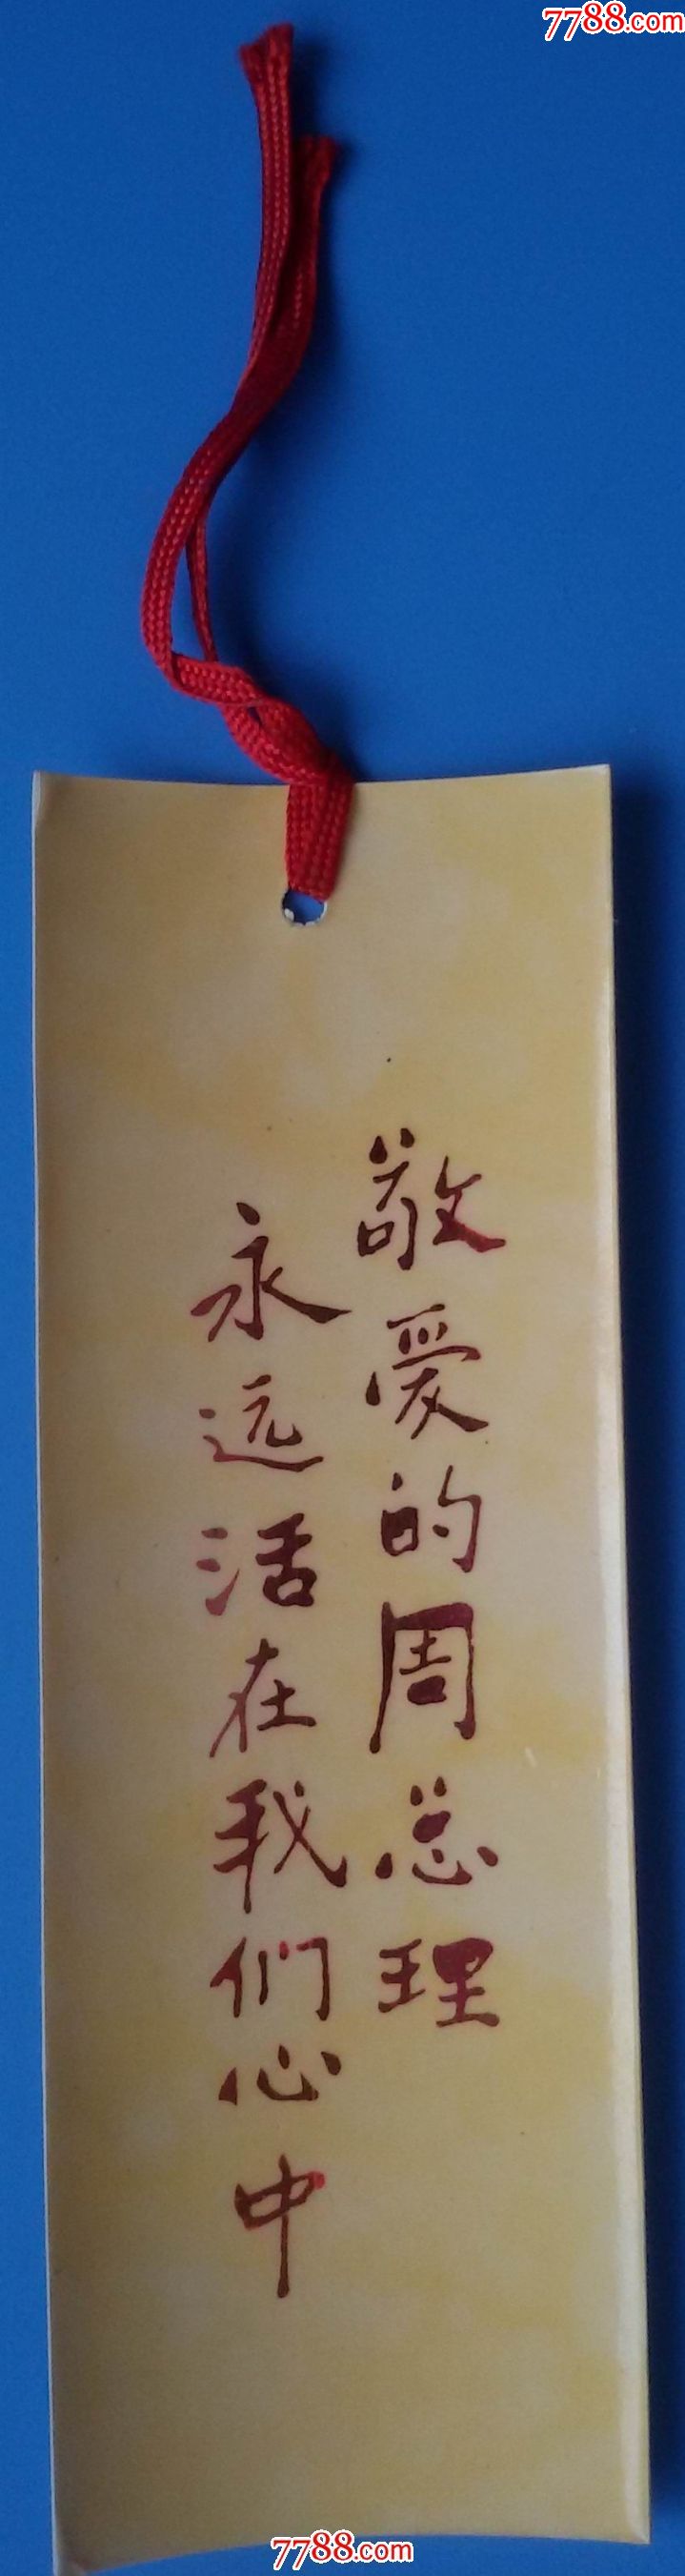 7788.com
敬爱的周总理
永远活在我们心中
7788.com